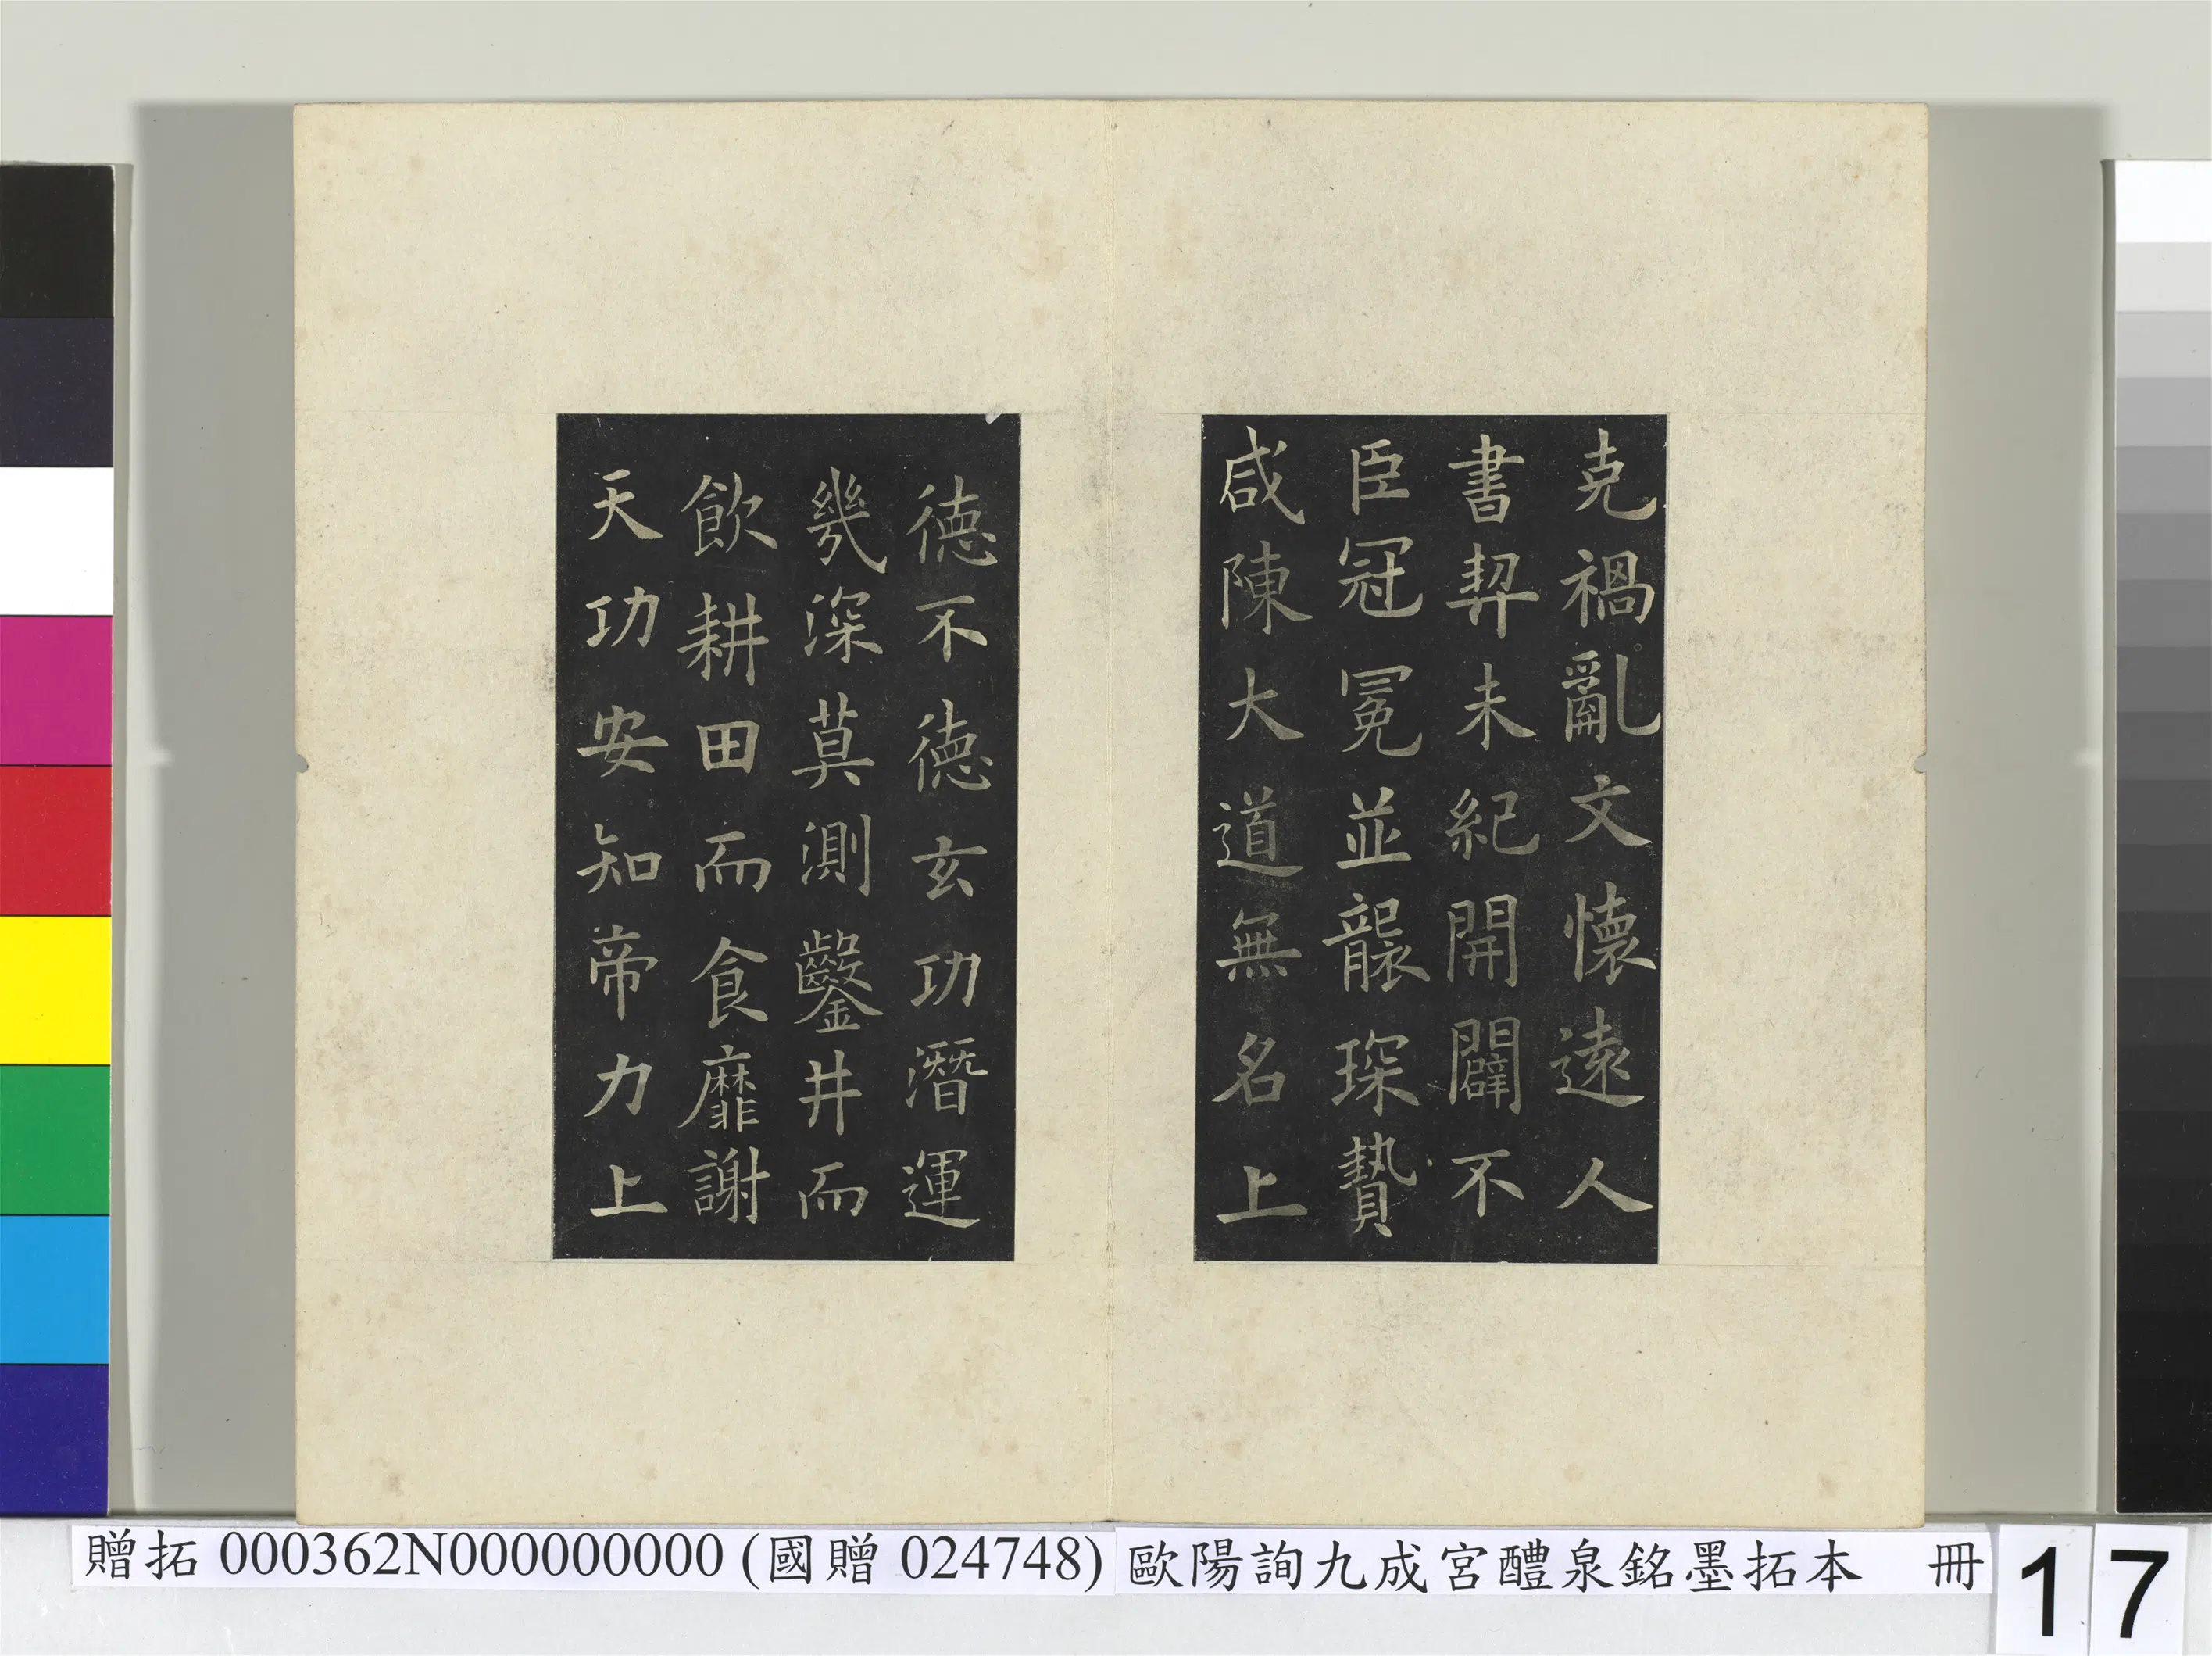 克禍亂文懷遠人
書契未紀開闢不
臣冠冕並襲琛贄
咸陳大道無名上
德不德玄功潛運
幾深莫測鑿井而
飲耕田而食靡謝
天功安知帝力上
贈拓 000362N000000000 (國贈 024748) 歐陽詢九成宮醴泉銘墨拓本 冊 17